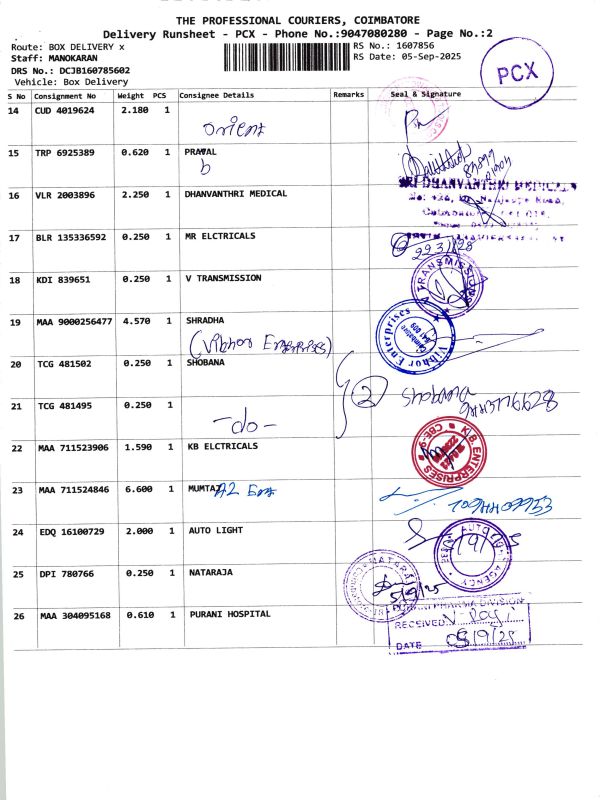 THE PROFESSIONAL COURIERS, COIMBATORE
Delivery Runsheet - PCX - Phone No.:9047080280 - Page No.:2
Route: BOX DELIVERY x
RS No.: 1607856
Staff: MANOKARAN
RS Date: 05-Sep-2025
DRS No.: DCJB160785602
Vehicle: Box Delivery
PCX
S No Consignment No Weight PCS Consignee Details Remarks Seal & Signature
14 CUD 4019624 2.180 1
orient
15 TRP 6925389 0.620 1 PRAVAL
b
16 VLR 2003896 2.250 1 DHANVANTHRI MEDICAL
SRI DHANVANTHRI MEDICALS
17 BLR 135336592 0.250 1 MR ELCTRICALS
18 KDI 839651 0.250 1 V TRANSMISSION
TRANSMISSIONS
19 MAA 9000256477 4.570 1 SHRADHA
(Vibhor Enterprises)
Vibhor Enterprises
Coimbatore
641 009
20 TCG 481502 0.250 1 SHOBANA
2
21 TCG 481495 0.250 1
-do-
22 MAA 711523906 1.590 1 KB ELCTRICALS
K.B. ENTERPRISES
CBE-9
23 MAA 711524846 6.600 1 MUMTAZ
A2 Ent
24 EDQ 16100729 2.000 1 AUTO LIGHT
AUTO
AGENCY
25 DPI 780766 0.250 1 NATARAJA
5/9/25
26 MAA 304095168 0.610 1 PURANI HOSPITAL
PHARMA DIVISION
RECEIVED
DATE 05/9/25